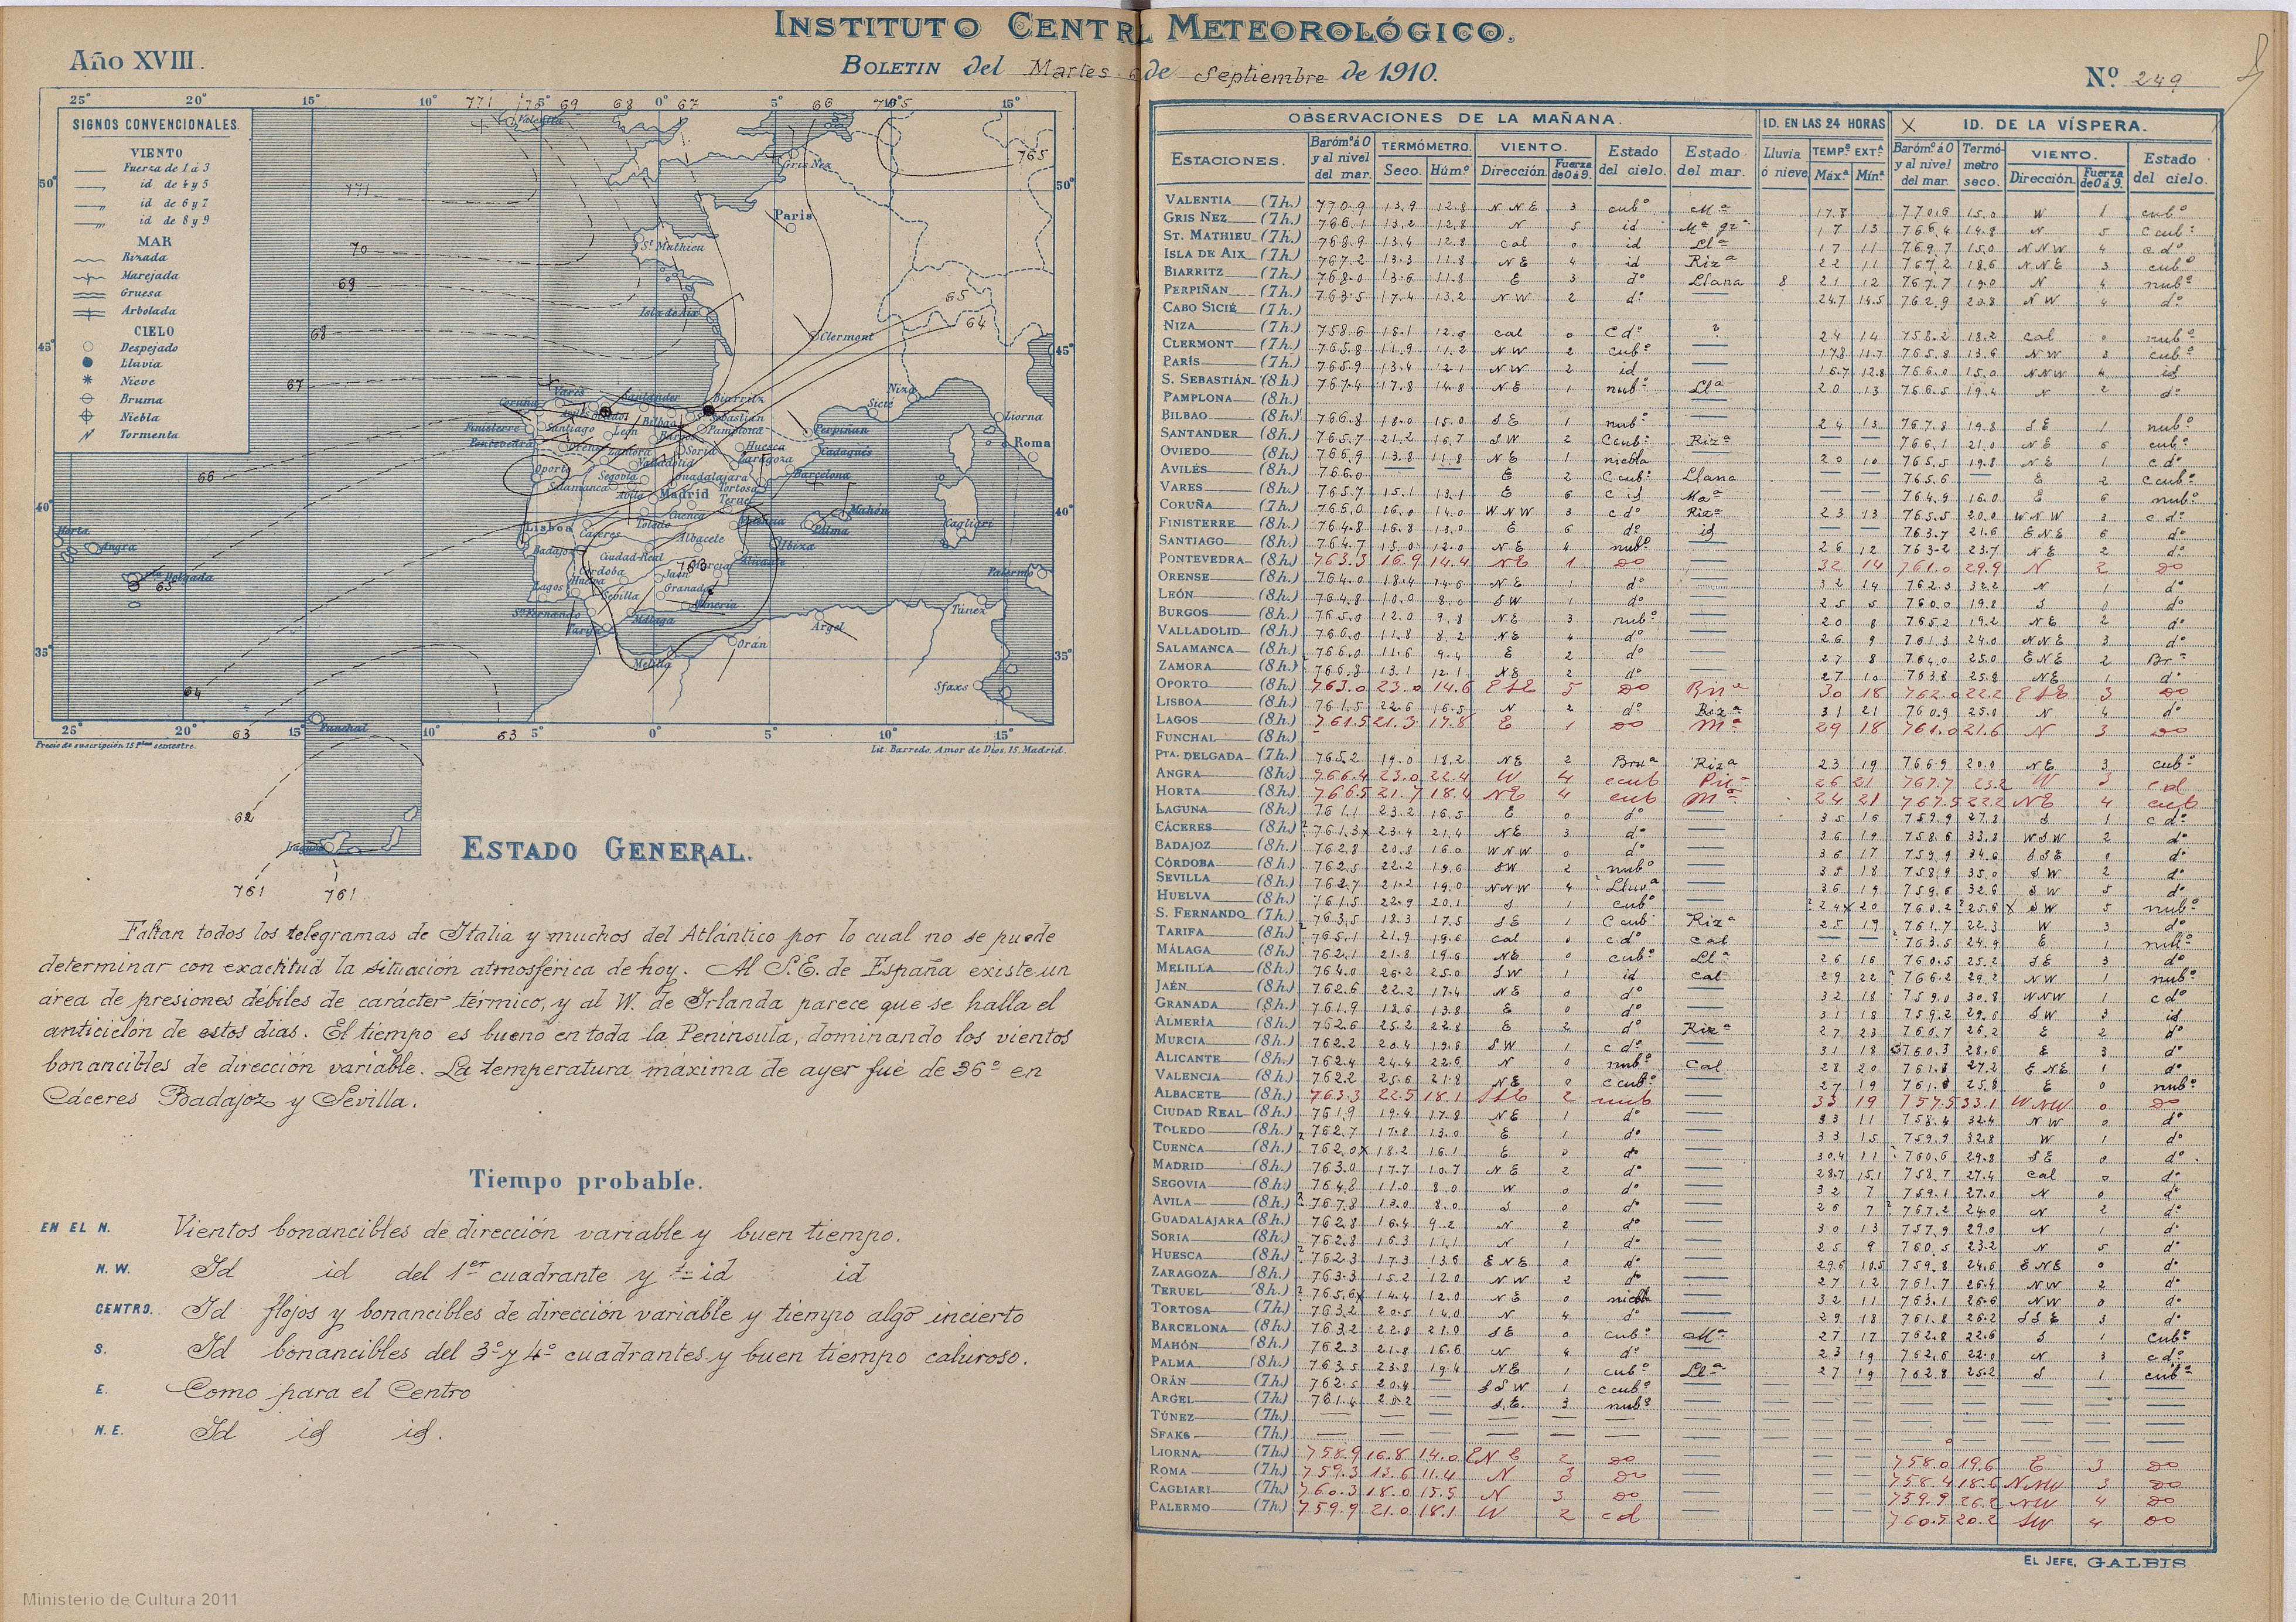 INSTITUTO CENTRL METEOROLÓGICO.
Año XVIII.
BOLETIN del Martes 6 de Septiembre de 1910.
Nº 249
SIGNOS CONVENCIONALES.
VIENTO
Fuerza de 1 á 3
id de 4 y 5
id de 6 y 7
id de 8 y 9
MAR
Rizada
Marejada
Gruesa
Arbolada
CIELO
Despejado
Lluvia
Nieve
Bruma
Niebla
Tormenta
Valentia
Gris Nez
Paris
St Mathieu
Isla de Aix
Clermont
Biarritz
Niza
Sicié
Liorna
Roma
Perpiñan
Cadaqués
Barcelona
Madrid
Lisboa
Mahón
Palma
Ibiza
Cagliari
Palermo
Túnez
Argel
Orán
Melilla
Sfaxs
Horta
Angra
Pta Delgada
Funchal
Laguna
Precio de suscripción 15 Ptas semestre.
Lit. Barredo, Amor de Dios, 15, Madrid.
ESTADO GENERAL.
Faltan todos los telegramas de Italia y muchos del Atlántico por lo cual no se puede
determinar con exactitud la situación atmosférica de hoy. Al S.E. de España existe un
área de presiones débiles de carácter térmico, y al W. de Irlanda parece que se halla el
anticiclón de estos dias. El tiempo es bueno en toda la Península, dominando los vientos
bonancibles de dirección variable. La temperatura máxima de ayer fué de 36º en
Cáceres Badajoz y Sevilla.
Tiempo probable.
EN EL N. Vientos bonancibles de dirección variable y buen tiempo.
N. W. Id id del 1er cuadrante y id id
CENTRO. Id flojos y bonancibles de dirección variable y tiempo algo incierto
S. Id bonancibles del 3º y 4º cuadrantes y buen tiempo caluroso.
E. Como para el Centro
N. E. Id id id.
OBSERVACIONES DE LA MAÑANA.
ID. EN LAS 24 HORAS
ID. DE LA VÍSPERA.
ESTACIONES.
Baróm.º á 0 y al nivel del mar.
TERMÓMETRO.
Seco. Húm.º
VIENTO.
Dirección. Fuerza de 0 á 9.
Estado del cielo.
Estado del mar.
Lluvia ó nieve
TEMP.ª EXT.ª
Máx.ª Mín.ª
Baróm.º á 0 y al nivel del mar.
Termómetro seco.
VIENTO.
Dirección. Fuerza de 0 á 9.
Estado del cielo.
VALENTIA (7h.) 770.9 13.9 12.8 N N E 3 cubº Mª 17.8 770.6 15.0 W 1 cubº
GRIS NEZ (7h.) 766.1 13.2 12.8 N 5 id 17 13 766.4 14.8 N 5 c cubº
ST. MATHIEU (7h.) 768.9 13.4 12.8 cal 0 id Llª 17 11 769.7 15.0 N N W 4 c dº
ISLA DE AIX (7h.) 767.2 13.3 11.8 N E 4 id Rizª 22 11 767.2 18.6 N N E 3 cubº
BIARRITZ (7h.) 768.0 13.6 11.8 E 3 dº Llana 8 21 12 767.7 19.0 N 4 nubº
PERPIÑAN (7h.) 763.5 17.4 13.2 N W 2 dº 24.7 14.5 762.9 20.8 N W 4 dº
CABO SICIÉ (7h.)
NIZA (7h.) 758.6 18.1 cal 0 c dº 24 14 758.2 18.2 cal 0 nubº
CLERMONT (7h.) 765.8 11.9 11.2 N W 2 cubº 765.8 13.6 N W cubº
PARÍS (7h.) 765.9 13.4 12.1 N W 2 id 16.7 12.8 766.0 15.0 N N W 4 id
S. SEBASTIÁN (8h.) 767.4 17.8 14.8 N E 1 nubº Llª 20 13 766.5 19.4 N 2 dº
PAMPLONA (8h.)
BILBAO (8h.) 766.8 18.0 15.0 S E 1 nubº 24 13 767.8 19.8 S E 1 nubº
SANTANDER (8h.) 765.7 21.2 16.7 S W 2 C cubº Rizª 766.1 21.0 N E 6 cubº
OVIEDO (8h.) 766.9 13.8 11.8 N E 1 niebla 20 10 765.5 19.8 N E 1 c dº
AVILÉS (8h.) 766.0 E 2 C cubº Llana 765.6 E 2 c cubº
VARES (8h.) 765.7 15.1 13.1 E 6 Mª 764.9 16.0 E 6 nubº
CORUÑA (8h.) 766.0 16.0 14.0 W N W 3 c dº Rizª 23 13 765.5 20.0 W N W 3 c dº
FINISTERRE (8h.) 764.8 16.8 13.0 E 6 dº id 763.7 21.6 E N E 6 dº
SANTIAGO (8h.) 764.7 15.0 12.0 N E 4 nubº 26 12 763.2 23.7 N E 2 dº
PONTEVEDRA (8h.) 763.3 16.9 14.4 NE 1 do 32 14 761.0 29.9 N 2 do
ORENSE (8h.) 764.0 18.4 14.6 N E 1 dº 32 14 762.3 32.2 N 1 dº
LEÓN (8h.) 764.8 10.0 8.0 S W 1 dº 25 5 760.0 19.8 S 0 dº
BURGOS (8h.) 765.0 12.0 9.8 N E 3 nubº 20 8 765.2 19.2 N E 2 dº
VALLADOLID (8h.) 766.0 11.8 8.2 N E 4 dº 26 9 761.3 24.0 N N E 3 dº
SALAMANCA (8h.) 766.0 11.6 9.4 E 2 dº 27 8 764.0 25.0 E N E 2 Brª
ZAMORA (8h.) 766.8 13.1 12.1 N E 2 dº 27 10 763.8 25.8 N E 1 dº
OPORTO (8h.) 763.0 23.0 14.6 ESE 5 do Rizª 30 18 762.0 22.2 ESE 3 do
LISBOA (8h.) 761.5 22.6 16.5 N 2 dº Rizª 31 21 760.9 25.0 N 4 dº
LAGOS (8h.) 761.5 21.3 17.8 E 1 do Mª 29 18 761.0 21.6 N 3 do
FUNCHAL (8h.)
PTA. DELGADA (7h.) 765.2 19.0 18.2 N E 2 Brª Rizª 23 19 766.9 20.0 N E 3 cubº
ANGRA (8h.) 766.4 23.0 22.4 W 4 ccub 26 21 767.7 23.2 W 3 cd
HORTA (8h.) 766.5 21.7 18.4 NE 4 cub Mª 24 21 767.5 22.2 NE 4 cub
LAGUNA (8h.) 761.1 23.2 16.5 E 0 dº 35 16 759.9 27.8 S 1 c dº
CÁCERES (8h.) 761.3 23.4 21.4 N E 3 dº 36 19 758.6 33.8 W S W 2 dº
BADAJOZ (8h.) 762.8 20.8 16.0 W N W 0 dº 36 17 759.9 34.6 S S E 0 dº
CÓRDOBA (8h.) 762.5 22.2 19.6 S W 2 nubº 35 18 758.9 35.0 S W 2 dº
SEVILLA (8h.) 762.7 21.2 19.0 N N W 4 Lluvª 36 19 759.6 32.6 S W 5 dº
HUELVA (8h.) 761.5 22.9 20.1 S 1 cubº 24 20 760.2 25.6 S W 5 nubº
S. FERNANDO (7h.) 763.5 18.3 17.5 S E 1 C cub Rizª 25 19 761.7 22.3 W 3 dº
TARIFA (8h.) 765.1 21.9 19.6 cal 0 c dº cal 763.5 24.9 E 1 nubº
MÁLAGA (8h.) 762.1 21.8 19.6 NE 0 cubº Llª 26 16 760.5 25.2 S E 3 dº
MELILLA (8h.) 764.0 26.2 25.0 S W 1 id cal 29 22 766.2 29.2 N W 1 nubº
JAÉN (8h.) 762.6 22.2 17.4 N E 0 dº 32 18 759.0 30.8 W N W 1 c dº
GRANADA (8h.) 761.9 18.6 13.8 E 0 dº 31 18 759.2 29.6 S W 3 id
ALMERÍA (8h.) 762.6 25.2 22.8 E 2 dº Rizª 27 23 760.7 26.2 E 2 dº
MURCIA (8h.) 762.2 20.4 19.6 S W 1 c dº 31 18 760.3 28.6 E 3 dº
ALICANTE (8h.) 762.4 24.4 22.6 N 0 nubº cal 28 20 761.8 27.2 E N E 1 dº
VALENCIA (8h.) 762.2 25.6 21.8 N E 0 c cubº 27 19 761.8 25.8 E 0 nubº
ALBACETE (8h.) 763.3 22.5 18.1 SSE 2 nub 33 19 757.5 33.1 WNW 0 do
CIUDAD REAL (8h.) 761.9 19.4 17.8 N E 1 dº 33 11 758.4 32.4 N W 0 dº
TOLEDO (8h.) 762.7 17.8 13.0 E 1 dº 33 15 759.9 32.8 W 1 dº
CUENCA (8h.) 762.0 18.2 16.1 E 0 dº 30.4 11 760.6 29.8 S E 0 dº
MADRID (8h.) 763.0 17.7 10.7 N E 2 dº 28.7 15.1 758.7 27.4 cal 0 dº
SEGOVIA (8h.) 764.8 11.0 8.0 W 0 dº 32 7 759.1 27.0 N 0 dº
AVILA (8h.) 767.8 13.0 8.0 S 0 dº 26 7 767.2 24.0 N 2 dº
GUADALAJARA (8h.) 762.8 16.4 9.2 N 2 dº 30 13 757.9 29.0 N 1 dº
SORIA (8h.) 762.8 16.3 11.1 N 1 dº 25 9 760.5 23.2 N 5 dº
HUESCA (8h.) 762.3 17.3 13.6 E N E 0 dº 29.6 10.5 759.8 24.6 E N E 0 dº
ZARAGOZA (8h.) 763.3 15.2 12.0 N W 2 dº 27 12 761.7 26.4 N W 2 dº
TERUEL (8h.) 765.6 14.4 12.0 N E 0 niebla 32 11 763.1 26.6 N W 0 dº
TORTOSA (7h.) 763.2 20.5 14.0 N 4 dº 29 18 761.8 26.2 S S E 3 dº
BARCELONA (8h.) 763.2 22.8 21.0 S E 0 cubº Mª 27 17 762.8 22.6 S 1 cubº
MAHÓN (8h.) 762.3 21.8 16.6 N 4 dº 23 19 762.6 22.0 N 3 c dº
PALMA (8h.) 763.5 23.8 19.4 N E 1 cubº Llª 27 19 762.8 25.2 S 1 cubº
ORÁN (7h.) 762.5 20.4 S S W 1 c cubº
ARGEL (7h.) 761.4 20.2 S E 3 nubº
TÚNEZ (7h.)
SFAKS (7h.)
LIORNA (7h.) 758.9 16.8 14.0 EN E 2 do 758.0 19.6 E 3 do
ROMA (7h.) 759.3 13.6 11.4 N 3 do 758.4 18.6 NNW 3 do
CAGLIARI (7h.) 760.3 18.0 15.5 N 3 do 759.9 26.2 NW 4 do
PALERMO (7h.) 759.9 21.0 18.1 W 2 cd 760.5 20.2 SW 4 do
EL JEFE, GALBIS
Ministerio de Cultura 2011